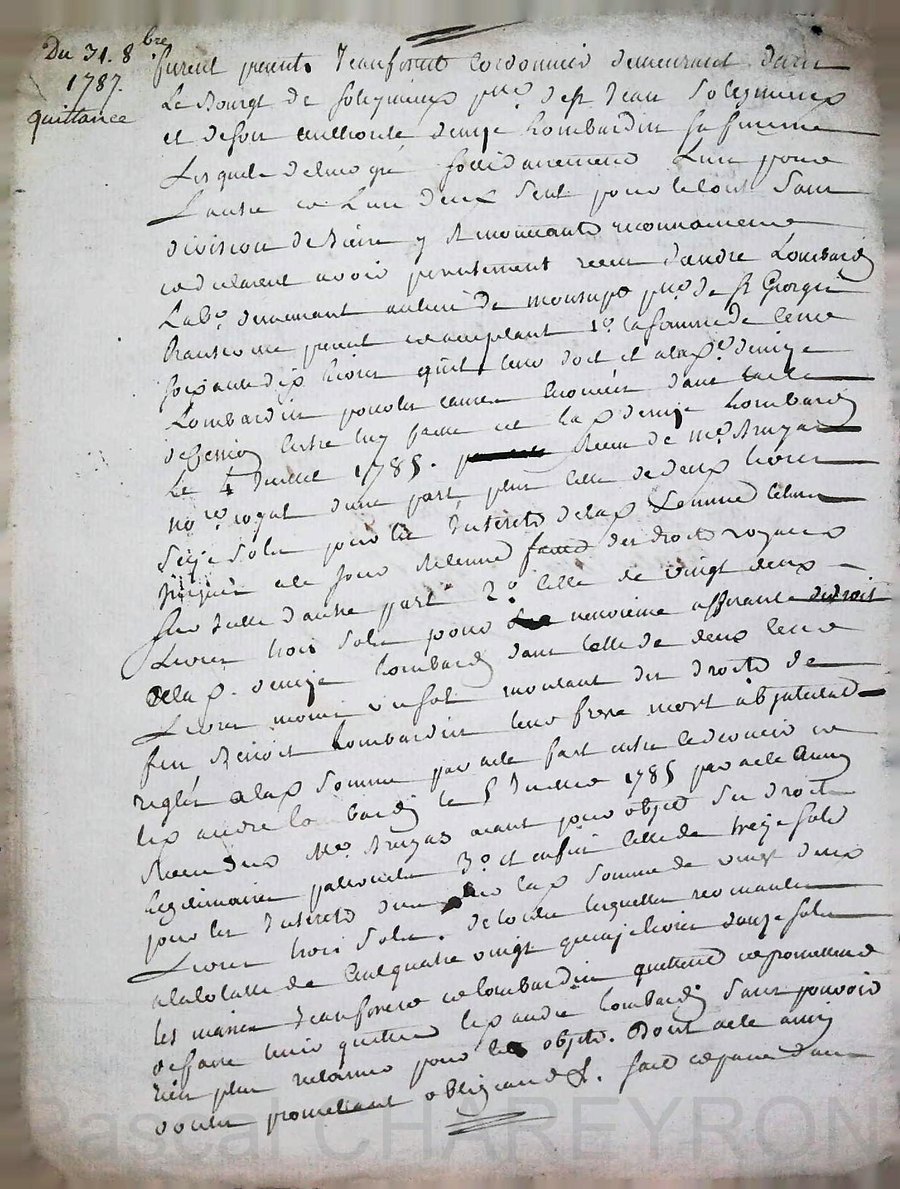 Du 31. 8bre
1787.
quittance
furent presents Jean forest cordonnier demeurant dans
Le Bourgt de soleymieux psse de st Jean Soleymieux
et de son authorité denize Lombardin sa femme
Lesquels de leur gré solidairement L'un pour
L'autre et L'un deux seul pour le tout sans
division de biens y renonçants reconnaissent
et declarent avoir presentement receu d'andre Lombardin
Labr demeurant au lieu de psse de st Georges
present et acceptant 1o la somme de cent
soixante dix livres qu'il leur doit et a la de denize
Lombardin pour les causes enoncées dans l'acte
de cession entre luy passé et la de denize Lombardin
Le 4 Juillet 1785. Receu de me Bruyas
nore royal d'une part plus celle de deux livres
seize sols pour les Interets de la de somme
jusques a ce jour Retenue faite des droits royaux
sur Iceux d'autre part 2o celle de vingt deux
Livres trois sols pour neuvieme afferante
a la d. denize Lombardin dans celle de deux cent
Livres moins un sol montant des droits de
feu Benoit Lombardin leur frere mort ab intestat
reglés a la de somme par acte fait entre
les andre Lombardin le 5 Juillet 1785 par acte aussy
Receu dud Me Bruyas ayant pour objet ses droits
Legitimaires paternels 3o et enfin celle de treize sols
pour les Interets de lad somme de vingt deux
Livres trois sols. de toutes lesquelles revenantes
a la totalle de Cent quatre vingt quinze livres douze sols
les mariés Jean forest et lombardin quittent et promettent
de faire tenir quitte led andre lombardin sans pouvoir
rien plus reclamer pour les objets. Dont acte ainsy
voulu promettant obligeant &. fait et passé dans
Pascal CHAREYRON